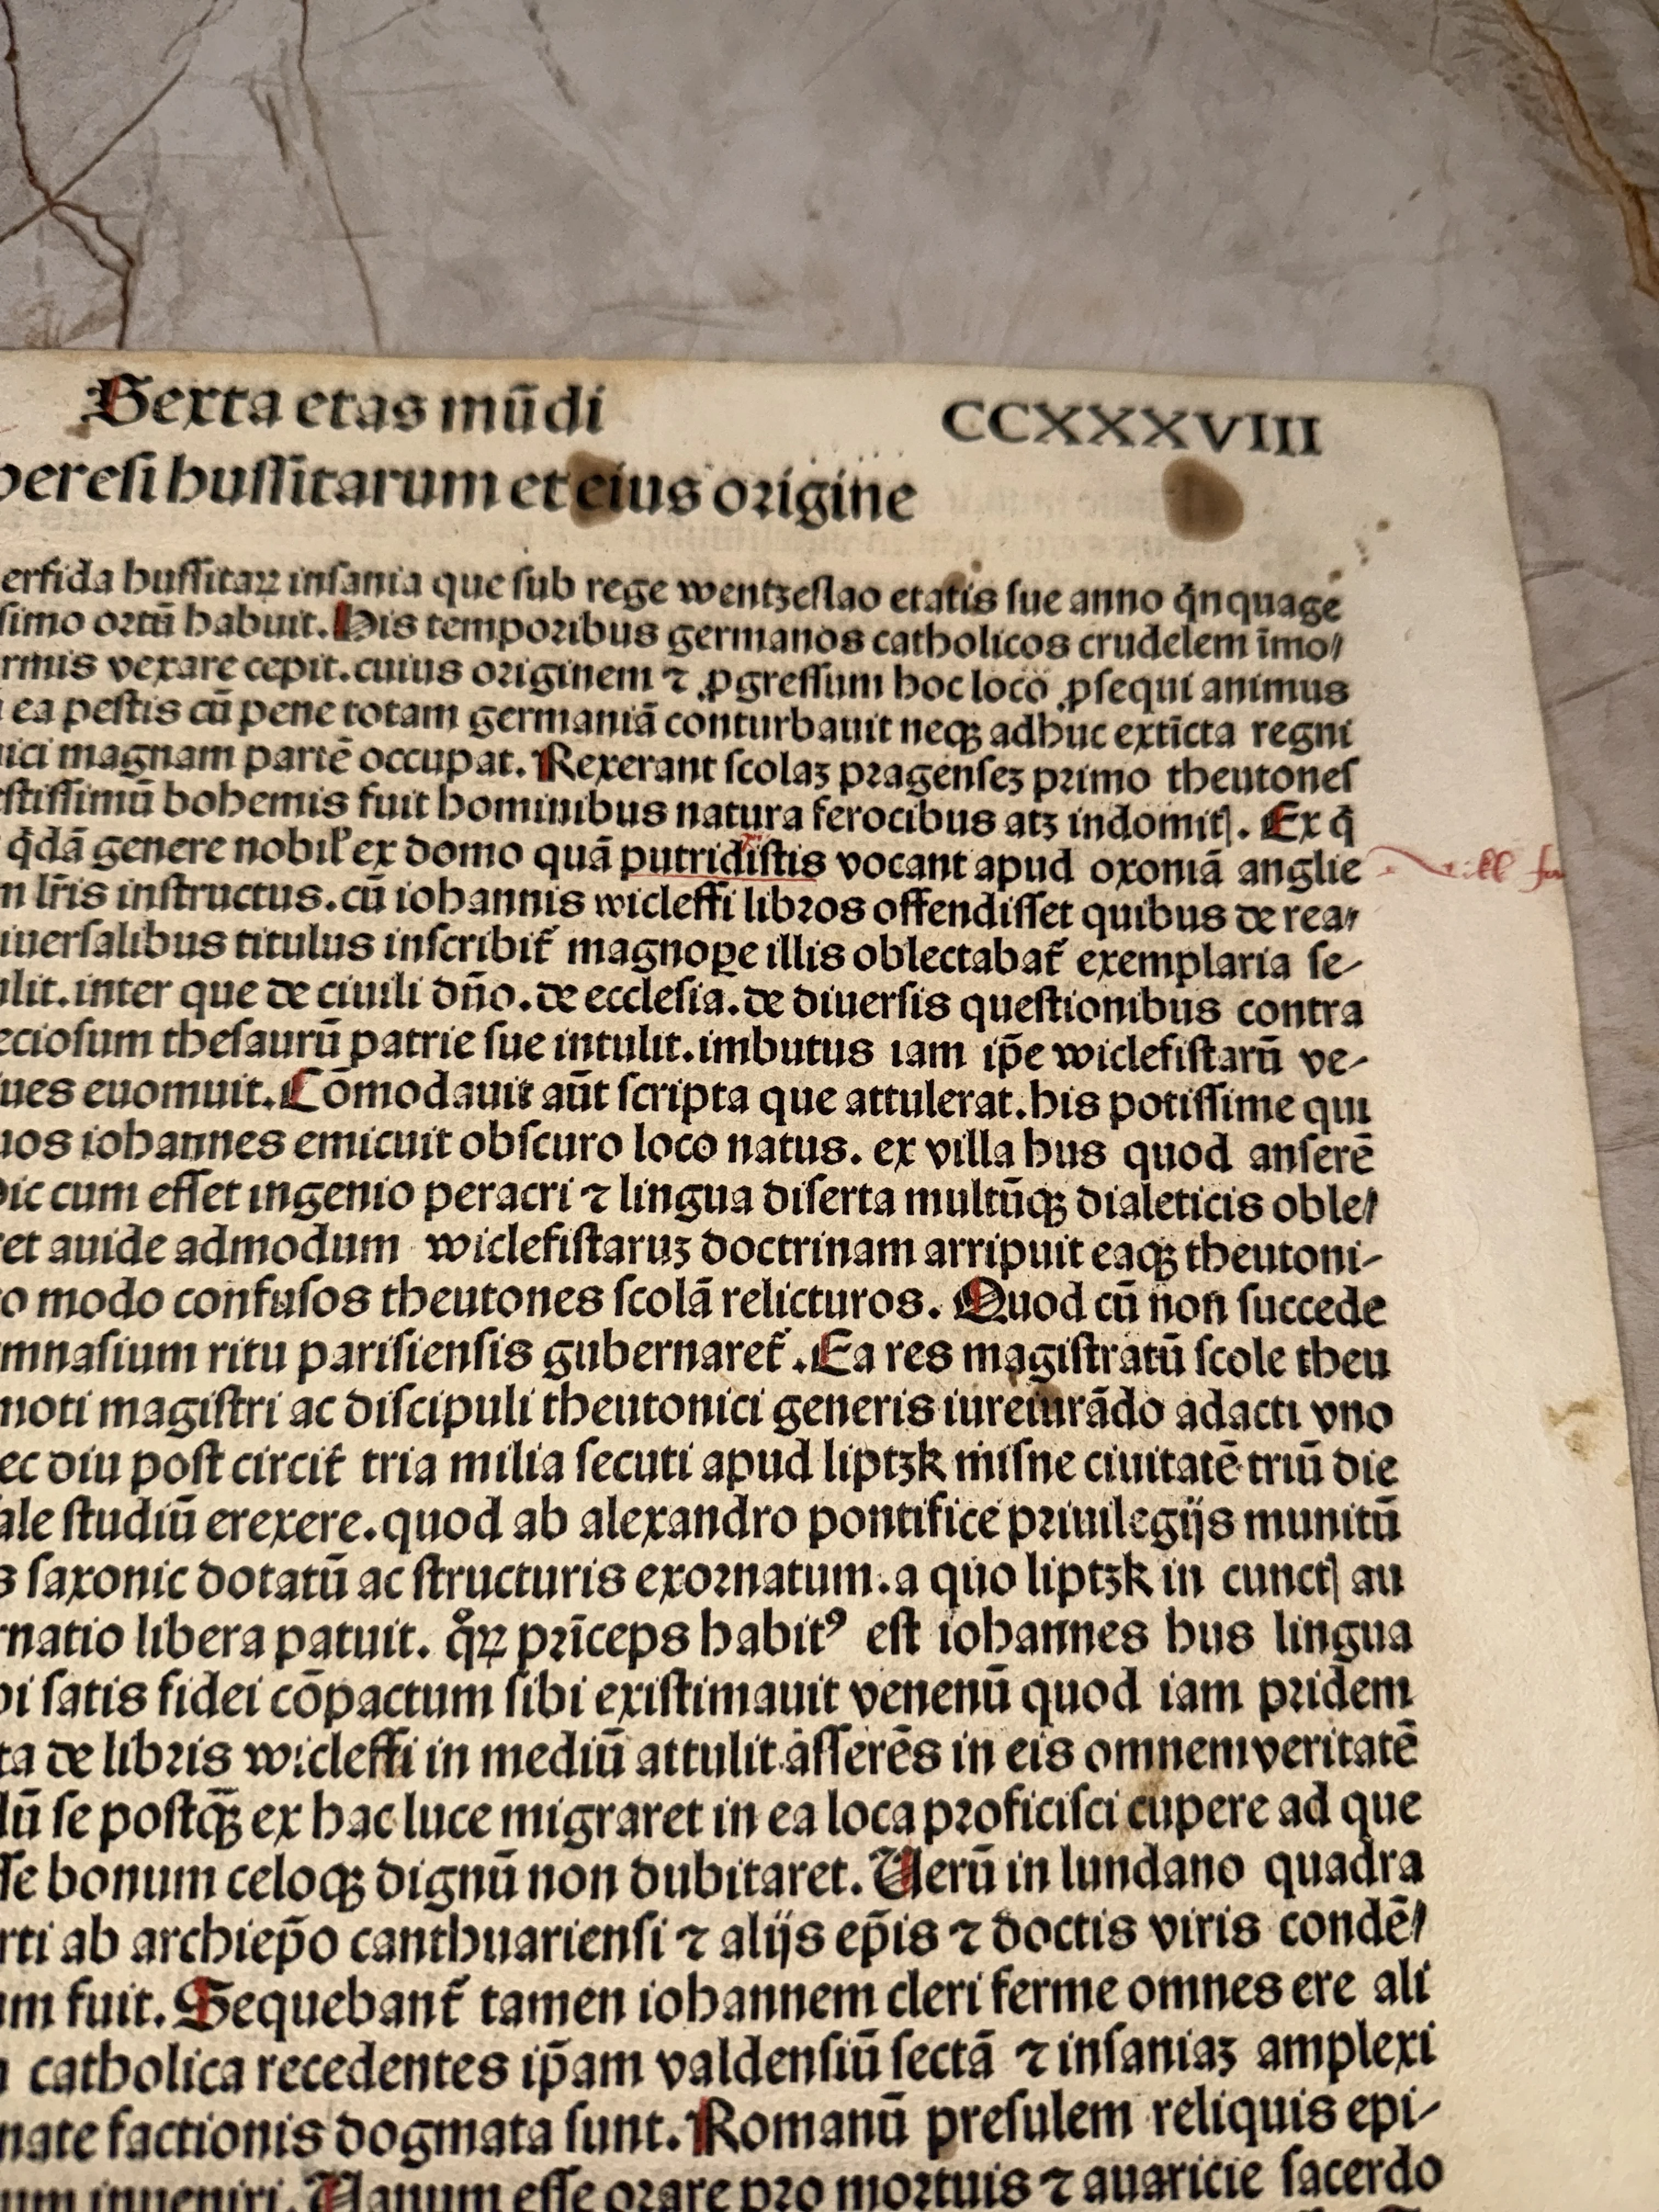 Sexta etas mūdi CCXXXVIII
heresi hussitarum et eius origine
erfida hussitaꝝ insania que sub rege wentzeslao etatis sue anno q̄nquage
simo ortū habuit. His temporibus germanos catholicos crudelem īmo/
rmis vexare cepit. cuius originem ⁊ ꝓgressum hoc loco ꝓsequi animus
ea pestis cū pene totam germaniā conturbauit neqꝫ adhuc extīcta regni
ici magnam partē occupat. Rexerant scolaꝫ pragenseꝫ primo theutones
stissimū bohemis fuit hominibus natura ferocibus atꝫ indomitꝭ. Ex q̄
q̄dā genere nobil' ex domo quā putridistis vocant apud oxoniā anglie
m lr̄is instructus. cū iohannis wicleffi libros offendisset quibus de rea/
iuersalibus titulus inscribit᷑ magnoꝑe illis oblectabat᷑ exemplaria se-
lit. inter que de ciuili dn̄o. de ecclesia. de diuersis questionibus contra
eciosum thesaurū patrie sue intulit. imbutus iam ip̄e wiclefistarū ve-
ues euomuit. Cōmodauit aūt scripta que attulerat. his potissime qui
uos iohannes emicuit obscuro loco natus. ex villa hus quod anserē
hic cum esset ingenio peracri ⁊ lingua diserta multūqꝫ dialeticis oble/
ret auide admodum wiclefistaruꝫ doctrinam arripuit eaqꝫ theutoni-
o modo confusos theutones scolā relicturos. Quod cū non succede
mnasium ritu parisiensis gubernaret᷑. Ea res magistratū scole theu
moti magistri ac discipuli theutonici generis iureiurādo adacti vno
ec diu post circit᷑ tria milia secuti apud liptzk misne ciuitatē triū die
ale studiū erexere. quod ab alexandro pontifice priuilegijs munitū
s saxonic dotatū ac structuris exornatum. a quo liptzk in cunctꝭ au
rnatio libera patuit. qͦꝝ prīceps habitꝰ est iohannes hus lingua
bi satis fidei cōpactum sibi existimauit venenū quod iam pridem
ta de libris wicleffi in mediū attulit asserēs in eis omnem veritatē
lū se postqꝫ̄ ex hac luce migraret in ea loca proficisci cupere ad que
sse bonum celoqꝫ dignū non dubitaret. Uerū in lundano quadra
rti ab archiep̄o canthuariensi ⁊ alijs ep̄is ⁊ doctis viris condē/
um fuit. Sequebant᷑ tamen iohannem cleri ferme omnes ere ali
catholica recedentes ip̄am valdensiū sectā ⁊ insaniaꝫ amplexi
nate factionis dogmata sunt. Romanū presulem reliquis epi-
um inueniri. Uanum esse orare pro mortuis ⁊ auaricie sacerdo